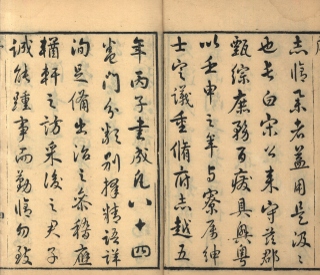 志脩采者益用是汲汲
也長白宋公来守茲郡
甄綜庶務百廢具興粤
以壬申之年与寮屬紳
士定議重脩府志越五
年丙子書成凡八十四
卷門分類別推精語詳
洵足備出治之叅稽應
輶軒之訪采後之君子
誠能踵事而勤脩勿致